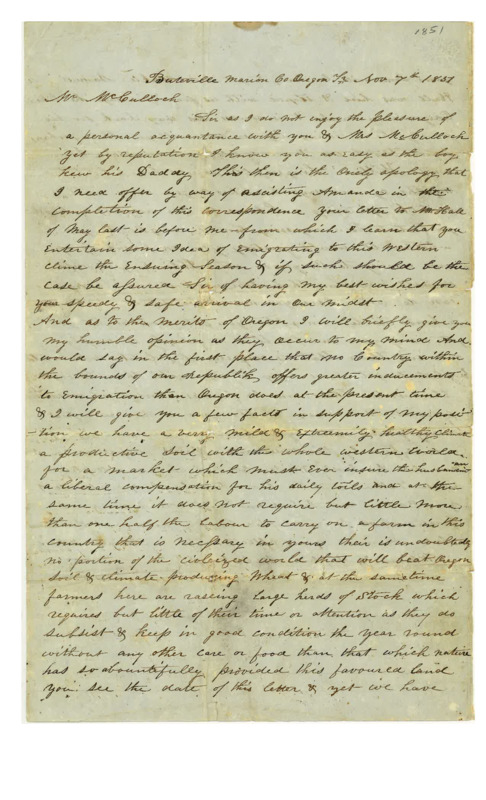 1851
Buteville Marion Co Oregon Ty Nov 7th 1851
Mr McCulloch
Sir as I do not enjoy the pleasure of
a personal acquantance with you & Mrs McCulloch
yet by reputation I know you as easy as the boy
knew his Daddy This then is the Onely apology that
I need offer by way of ascisting Amanda in the
completion of this correspondence your letter to Mr Hall
of May last is before me from which I learn that you
Entertain some Idea of Emigreting to this Western
clime the Ensuing Season & if such should be the
case be assured Sir of having my best wishes for
your speedy & safe arrival in our midst
And as to the merits of Oregon I will briefly give you
my humble opinion as they occur to my mind And
would say in the first place that no Country within
the bounds of our republik offers greater inducements
to Emigration than Oregon does at the present time
& I will give you a few facts in support of my posi-
-tion we have a very mild & Extremily healthy climate
a productive soil with the whole western World
for a market which must Ever insure the husbandman
a liberal compensation for his daily toils and at the
same time it does not require but little more
than one half the labour to carry on a farm in this
country that is necessary in yours their is undoubtedly
no portion of the civleized world that will beat Oregon
soil & climate producing Wheat & at the sametime
farmers here are raseing large herds of Stock which
requires but little of their time or attention as they do
subsist & keep in good condition the year round
without any other care or food than that which nature
has so abountifully provided this favoured land
you see the date of this letter & yet we have